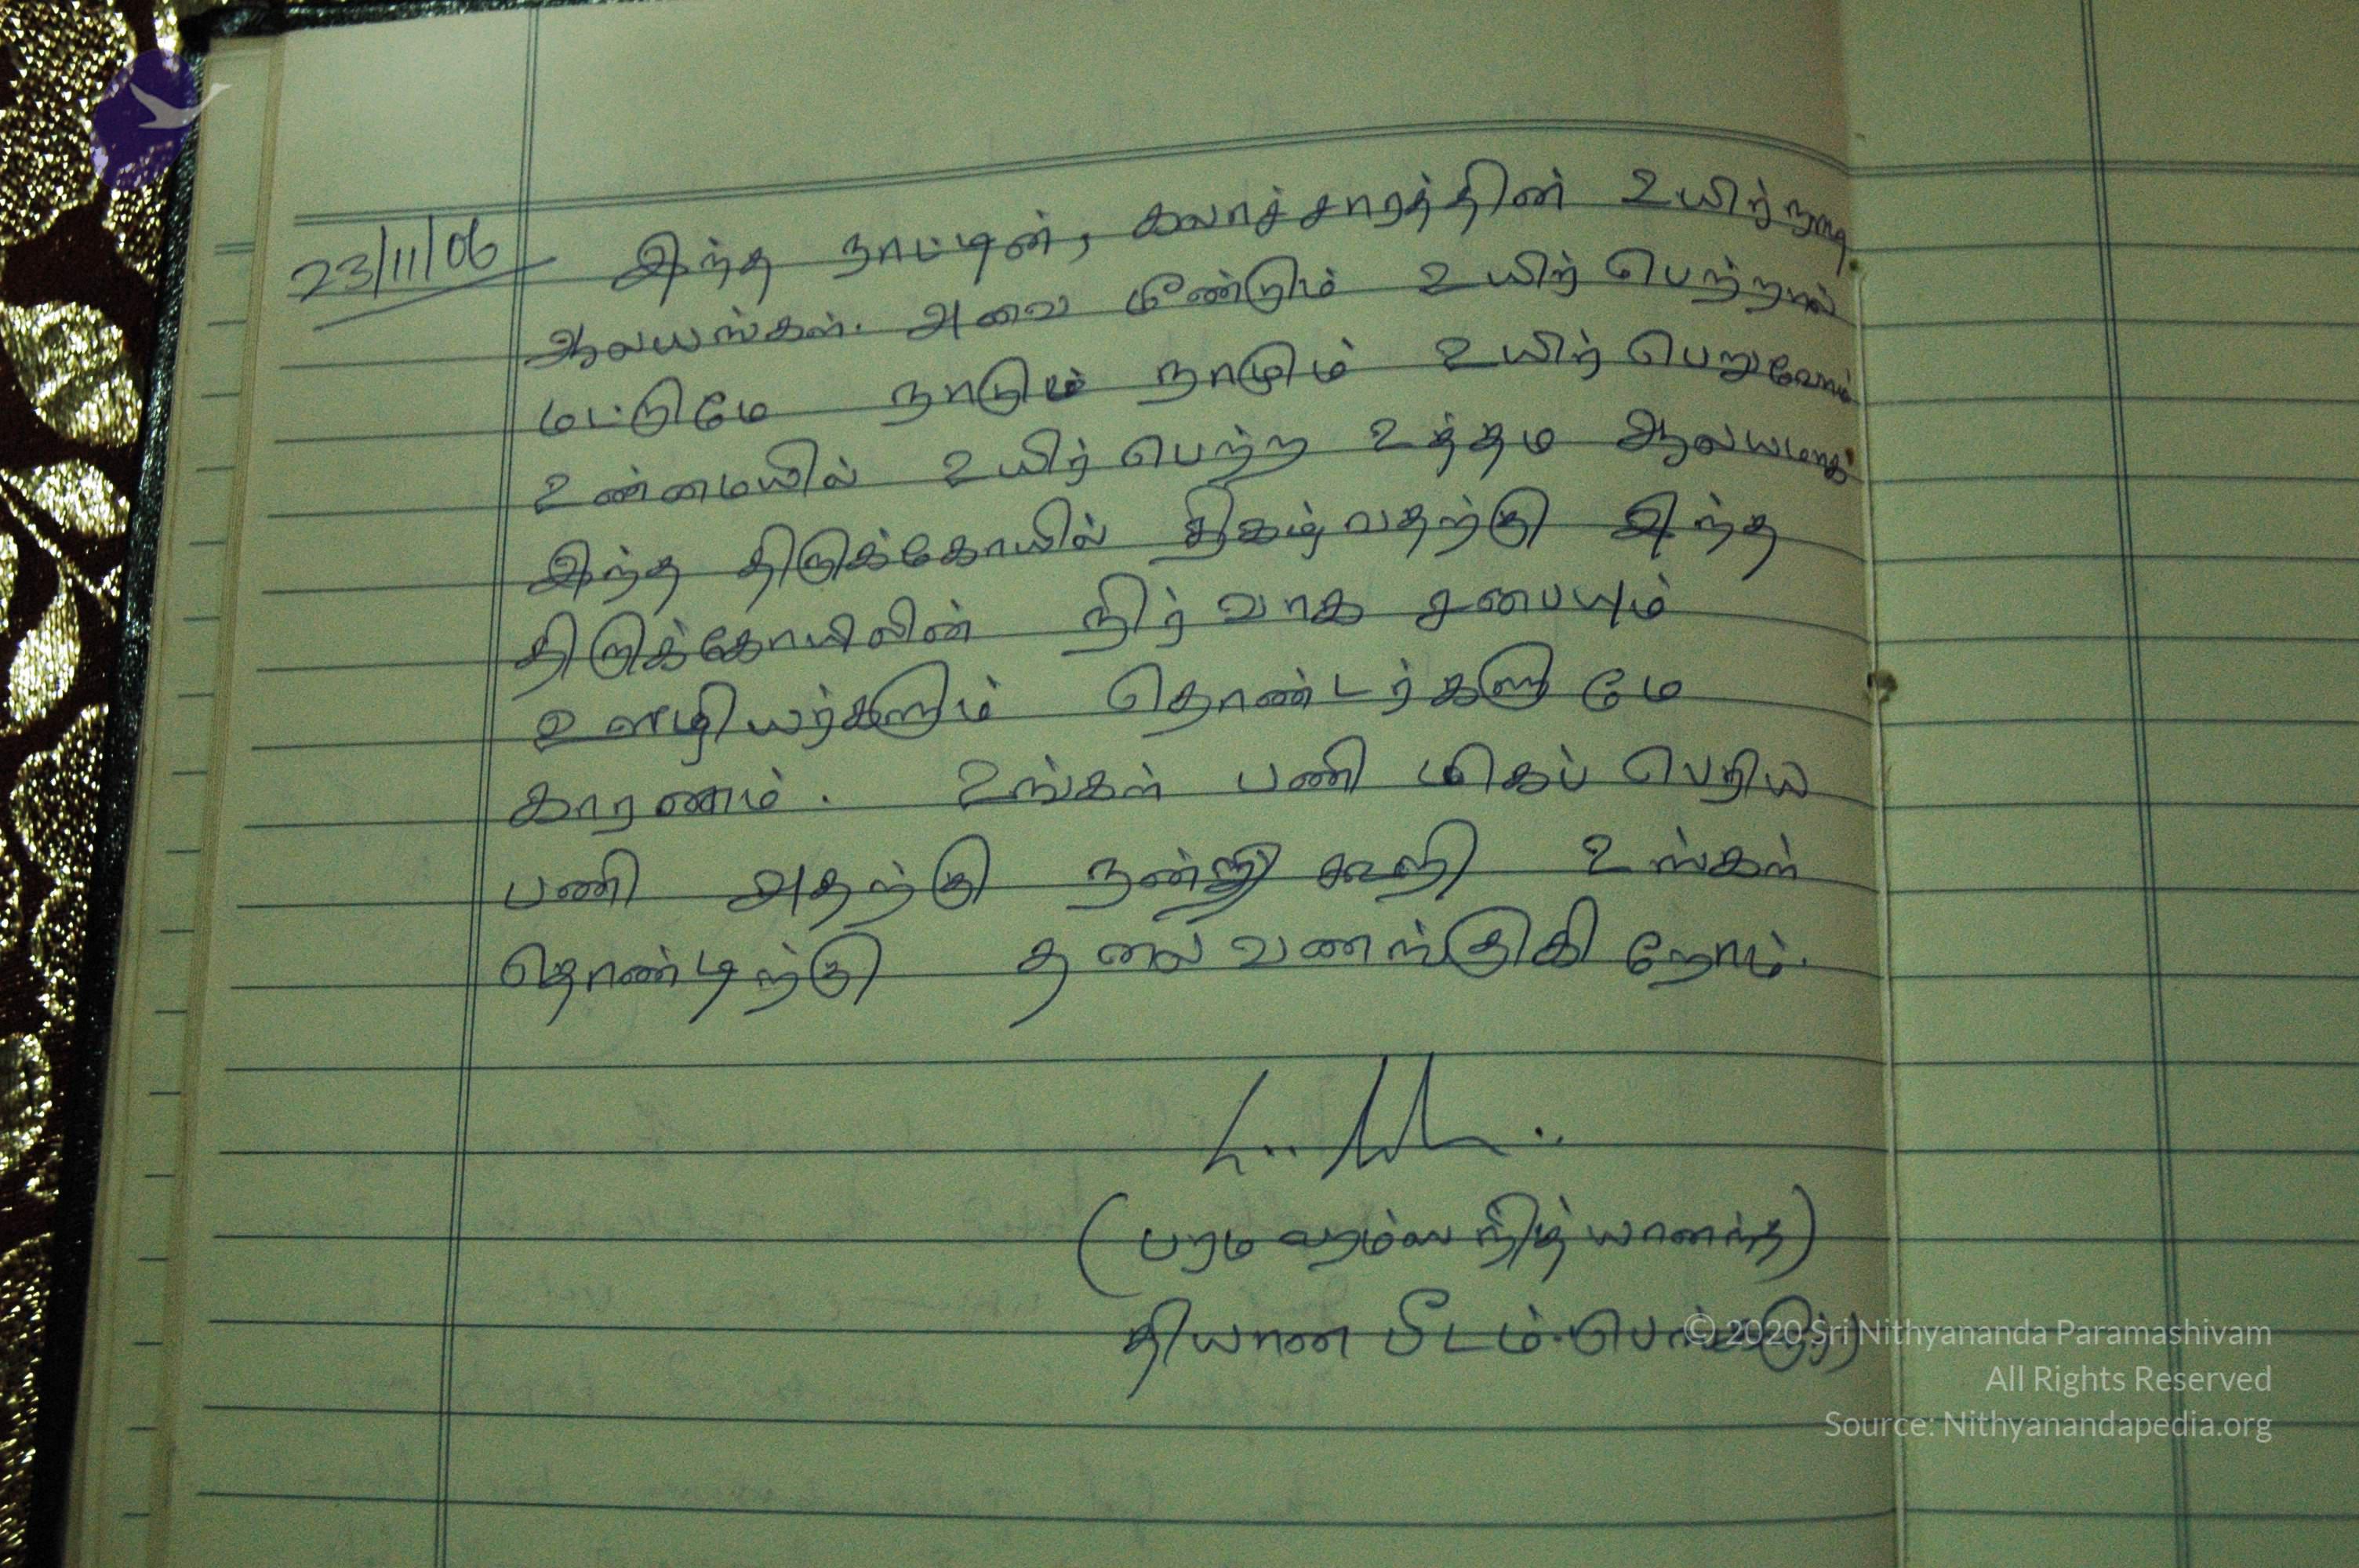 23/11/06 இந்த நாட்டின், கலாச்சாரத்தின் உயிர்நாடி
ஆலயங்கள். அவை மீண்டும் உயிர் பெற்றால்
மட்டுமே நாடும் நாமும் உயிர் பெறுவோம்
உண்மையில் உயிர் பெற்ற உத்தம ஆலயமாக
இந்த திருக்கோயில் திகழ்வதற்கு இந்த
திருக்கோயிலின் நிர்வாக சபையும்
ஊழியர்களும் தொண்டர்களுமே
காரணம். உங்கள் பணி மிகப் பெரிய
பணி அதற்கு நன்றி கூறி உங்கள்
தொண்டிற்கு தலை வணங்குகிறோம்.
(பரமஹம்ஸ நித்யானந்த)
தியான பீடம்.
© 2020 Sri Nithyananda Paramashivam
All Rights Reserved
Source: Nithyanandapedia.org